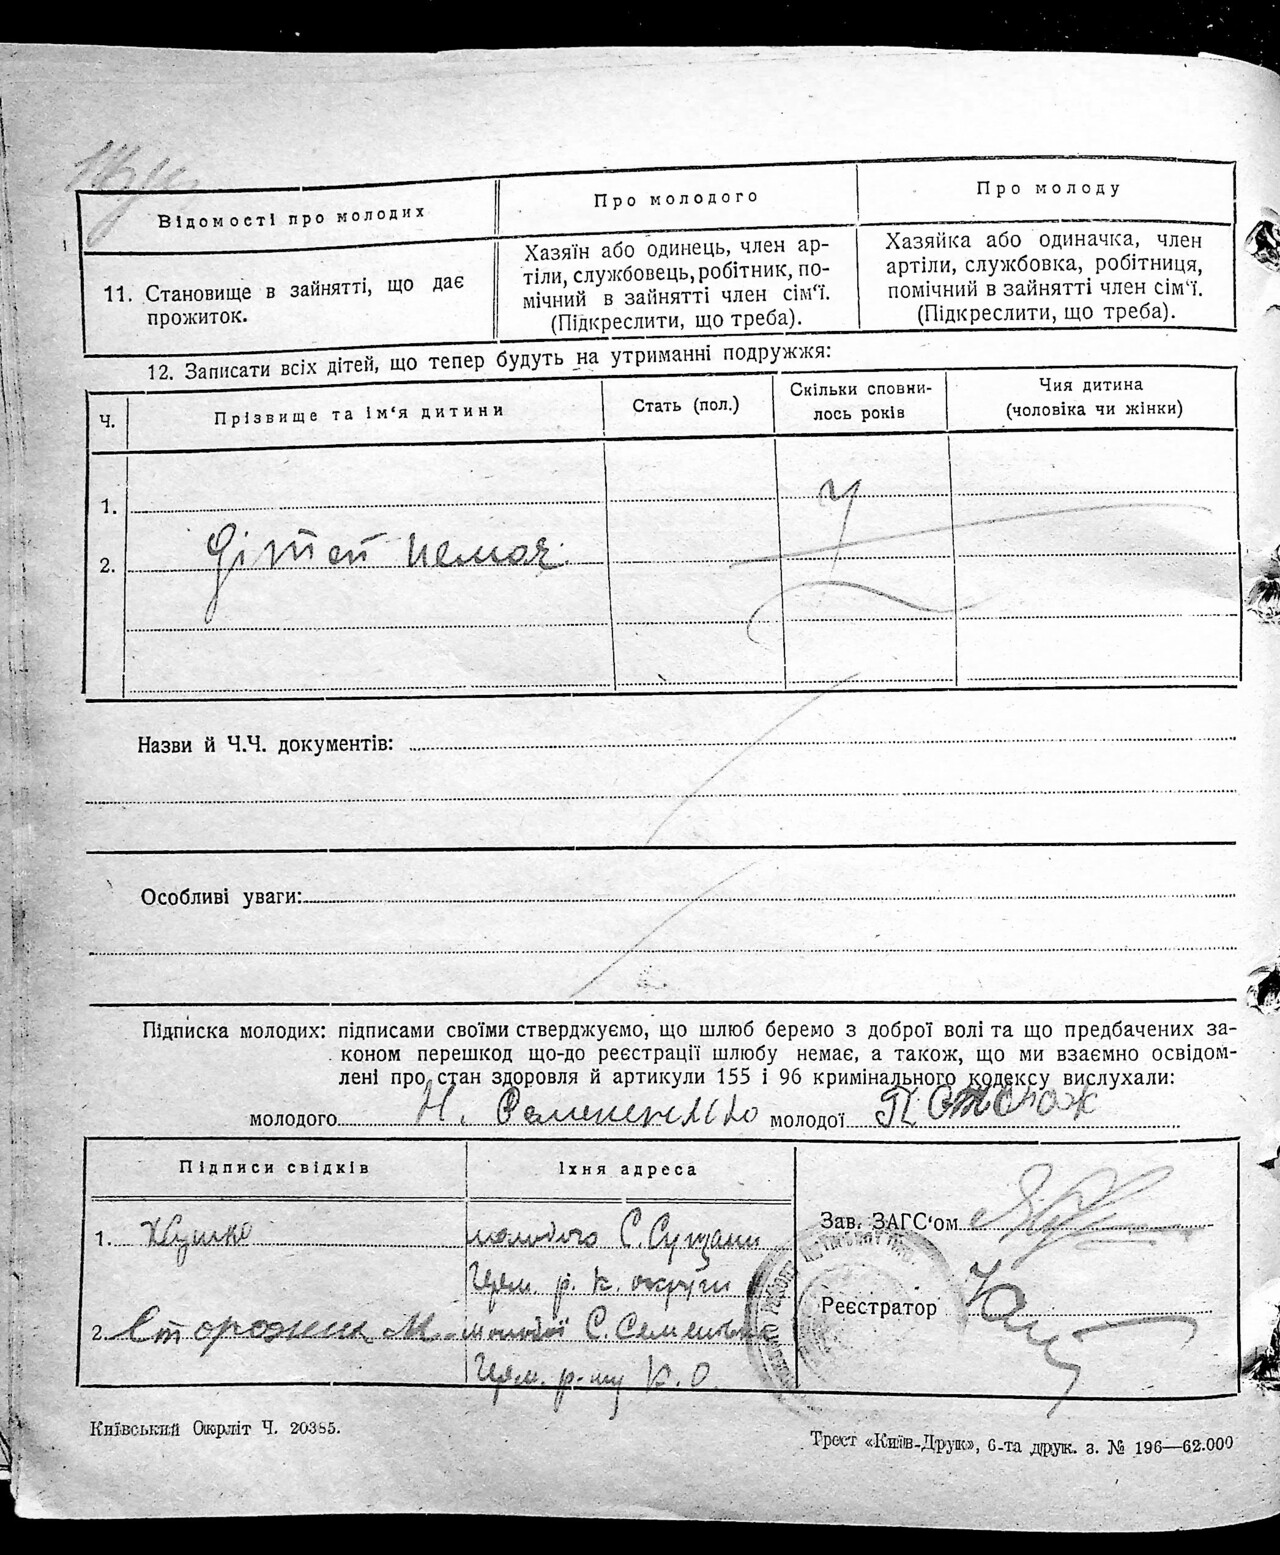 Відомості про молодих
Про молодого
Про молоду
11. Становище в зайнятті, що дає
прожиток.
Хазяїн або одинець, член ар-
тіли, службовець, робітник, по-
мічний в зайнятті член сім'ї.
(Підкреслити, що треба).
Хазяйка або одиначка, член
артіли, службовка, робітниця,
помічний в зайнятті член сім'ї.
(Підкреслити, що треба).
12. Записати всіх дітей, що тепер будуть на утриманні подружжя:
Ч.
Прізвище та ім'я дитини
Стать (пол.)
Скільки сповни-
лось років
Чия дитина
(чоловіка чи жінки)
1.
2. Дітей немає
Назви й Ч.Ч. документів:
Особливі уваги:
Підписка молодих: підписами своїми стверджуємо, що шлюб беремо з доброї волі та що предбачених за-
коном перешкод що-до реєстрації шлюбу немає, а також, що ми взаємно освідом-
лені про стан здоровля й артикули 155 і 96 кримінального кодексу вислухали:
молодого Н. молодої П Сторож
Підписи свідків
Їхня адреса
1.
молодого С. Сущани
р. К. округи
2. Сторожик М.
молодої С. Семенівка
р-ну К. О.
Зав. ЗАГС'ом
Реєстратор
Київський Окрліт Ч. 20385.
Трест «Київ-Друк», 6-та друк. з. № 196—62.000